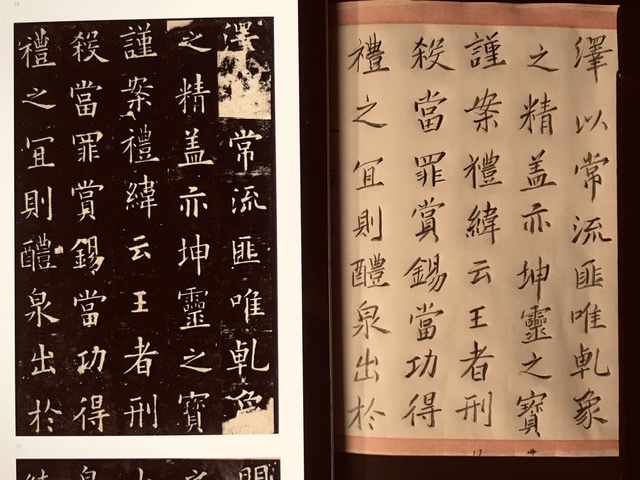 澤常流匪唯乹象
之精盖亦坤靈之寶
謹案禮緯云王者刑
殺當罪賞錫當功得
禮之冝則醴泉出於
澤以常流匪唯乹象
之精盖亦坤靈之寶
謹案禮緯云王者刑
殺當罪賞錫當功得
禮之冝則醴泉出於